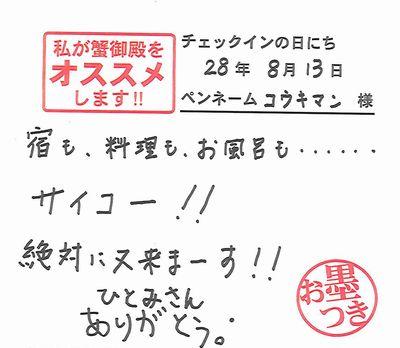 私が蟹御殿を
オススメ
します!!
チェックインの日にち
28年 8月13日
ペンネーム コウキマン 様
宿も、料理も、お風呂も······
サイコー!!
絶対に又来まーす!!
ひとみさん
ありがとう。
お墨つき